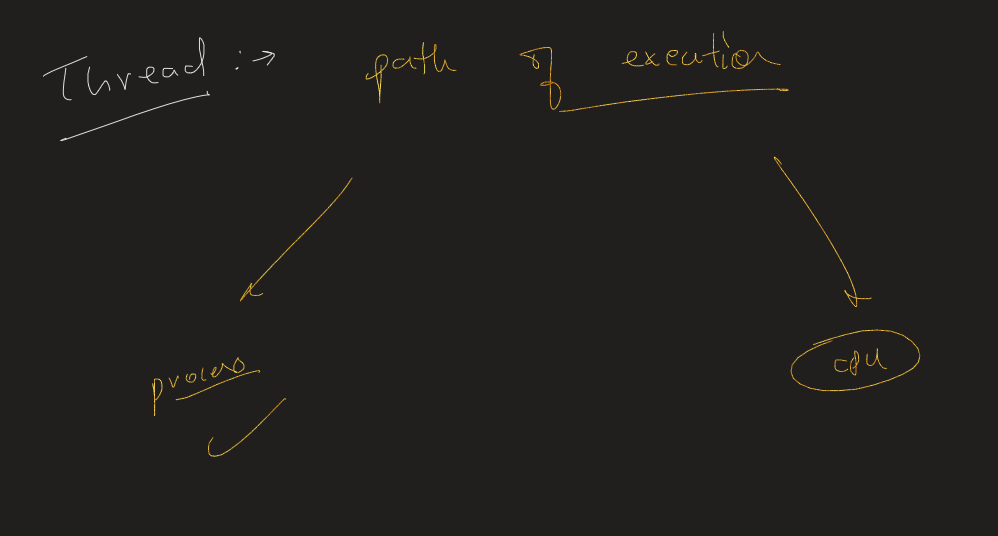 Thread :→ path of execution
process
CPU